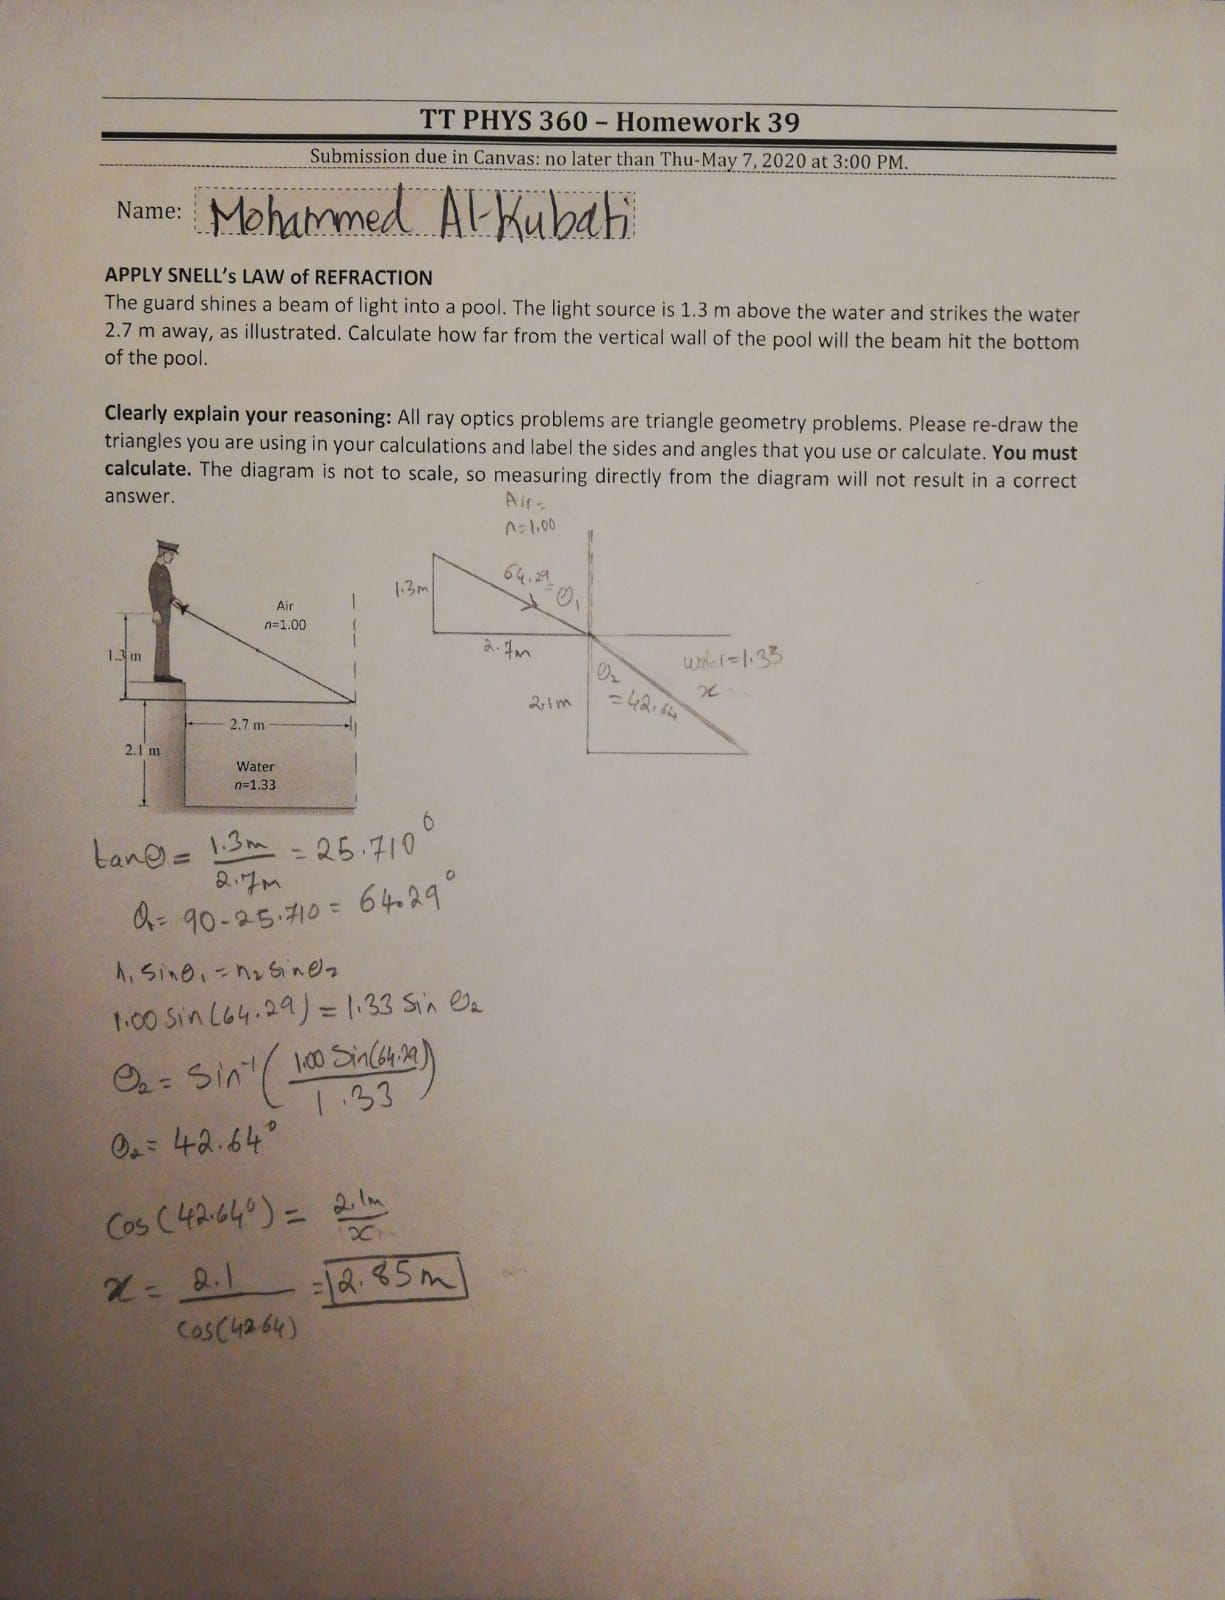 TT PHYS 360 – Homework 39
Submission due in Canvas: no later than Thu-May 7, 2020 at 3:00 PM.
Name: Mohammed Al-Kubati
APPLY SNELL's LAW of REFRACTION
The guard shines a beam of light into a pool. The light source is 1.3 m above the water and strikes the water
2.7 m away, as illustrated. Calculate how far from the vertical wall of the pool will the beam hit the bottom
of the pool.
Clearly explain your reasoning: All ray optics problems are triangle geometry problems. Please re-draw the
triangles you are using in your calculations and label the sides and angles that you use or calculate. You must
calculate. The diagram is not to scale, so measuring directly from the diagram will not result in a correct
answer.
Air
n=1.00
1.3 m
2.7 m
2.1 m
Water
n=1.33
Air =
n=1.00
1.3m
64.29
= θ₁
2.7m
water=1.33
x
θ₂
= 42.64
2.1m
tanθ = 1.3m / 2.7m = 25.710°
θ₁= 90-25.710 = 64.29°
n₁ sinθ₁ = n₂ sinθ₂
1.00 sin(64.29) = 1.33 sin θ₂
θ₂ = sin⁻¹ (1.00 sin(64.29) / 1.33)
θ₂ = 42.64°
cos(42.64°) = 2.1m / x
x = 2.1 / cos(42.64) = 2.85m